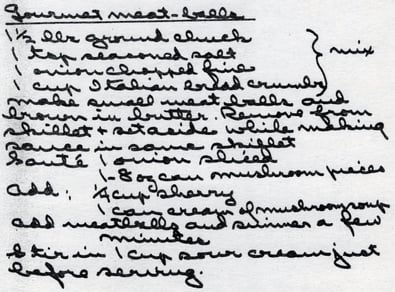 Gourmet meat-balls
1½ lbs ground chuck
1 tsp seasoned salt } mix
1 onion chopped fine
1 cup Italian bread crumbs
make small meat balls and
brown in butter. Remove from
skillet & set aside while making
sauce in same skillet
Sauté 1 onion sliced
1-8oz can mushroom pieces
add: ¼ cup sherry
1 can cream of mushroom soup
add meatballs and simmer a few
minutes
Stir in 1 cup sour cream just
before serving.